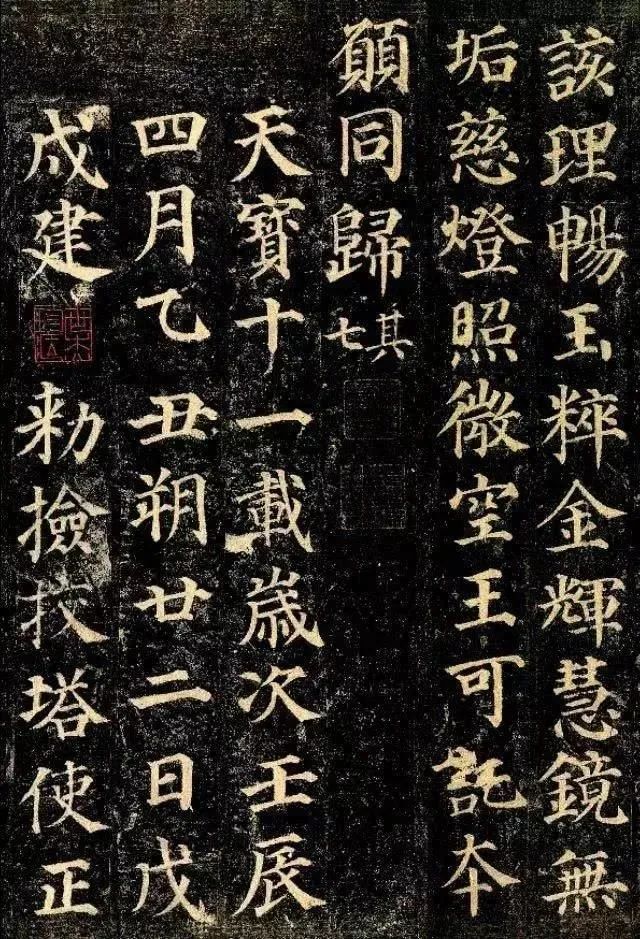 該理暢玉粹金輝慧鏡無
垢慈燈照微空王可託本
願同歸其七
天寶十一載歲次壬辰
四月乙丑朔廿二日戊
戌建 勅撿挍塔使正